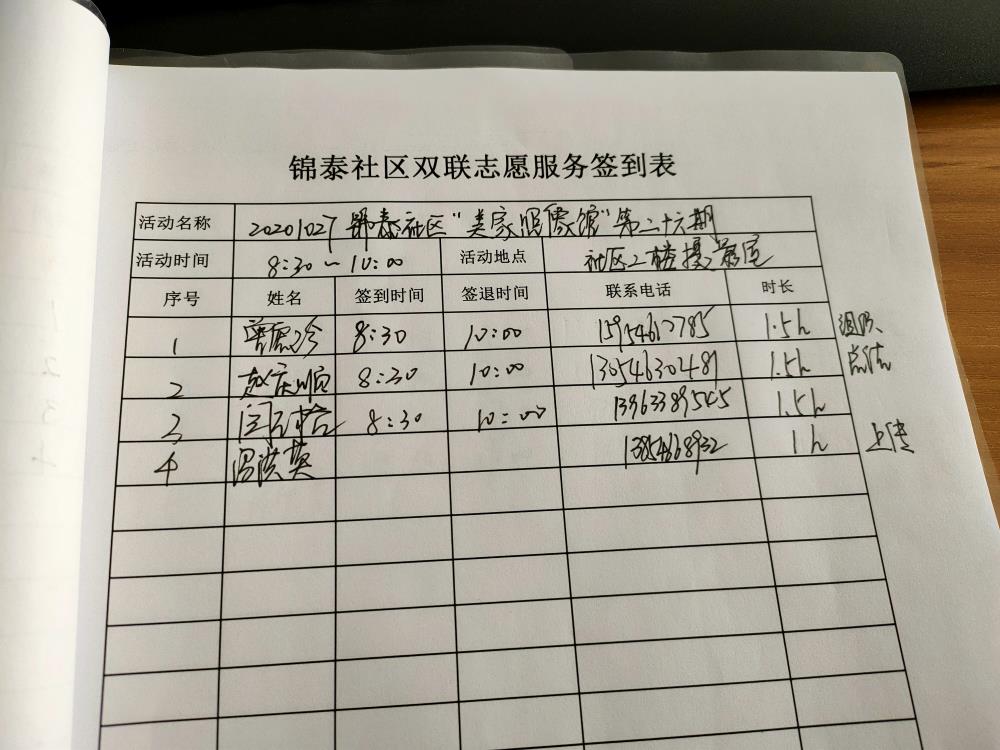 锦泰社区双联志愿服务签到表
活动名称 20201027 锦泰社区"美家照像馆"第二十六期
活动时间 8:30~10:00 活动地点 社区二楼摄影室
序号 姓名 签到时间 签退时间 联系电话 时长
1 8:30 10:00 1.5h
2 赵庆顺 8:30 10:00 13054630481 1.5h
3 8:30 10:00 13963389545 1.5h
4 温洪英 13854668932 1h 上传